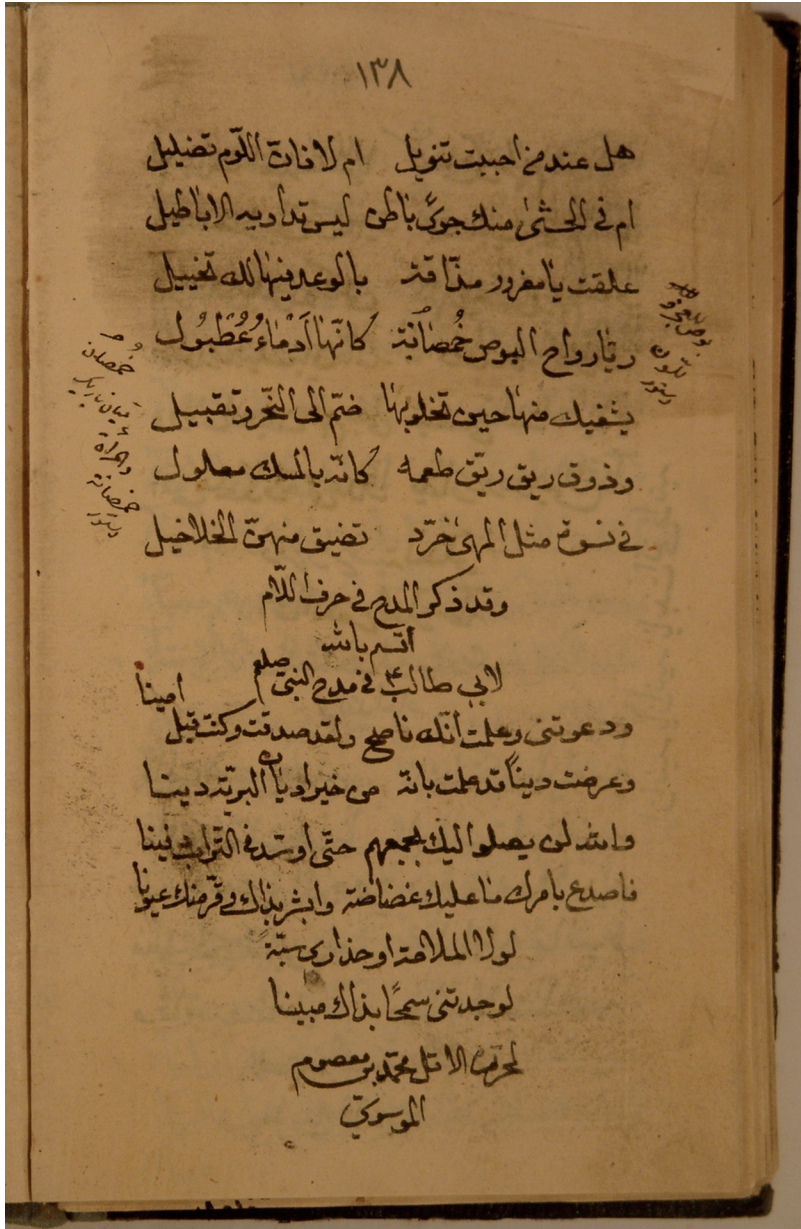 ١٣٨
هل عند من احببت تنويل ام لا فان اللّوم تضليل
ام في الحشىٰ منك جوىً باطن ليس تداويه الاباطيل
علقت يا مغرور مذّاقة بالوعد فيها لك تخييل
ريّا رواح البوص خُمصَانَة كانّها اَدْمَاءُ عُطْبُول
يشفيك منها حين تخلو بها ضمّ الى النّحر وتقبيل
وذوق ريق ريّق طعمه كانّه بالمسك معلول
في نسوة مثل المهىٰ خرّد تضيق منهنّ الخلاخيل
وقد ذكر المدح في حرف اللّام
اقسم بالله
لابي طالب ع في مدح النبيّ صلعم
ودعوتني وعلمت أنّك ناصح ولقد صدقت وكنت قبل امينا
وعرضت ديناً قد علمت بانّه من خير اديان البريّة دينا
والله لن يصلوا اليك بجمعهم حتّى اوسّد في التّراب دفينا
فاصدع بامرك ما عليك غضاضة وابشر بذاك وقرّ منك عيونا
لولا الملامة او حذاري سبّة
لوجدتني سمحًا بذاك مبينا
لمحرّره الاقل محمّد بن معصوم
الموسويّ
خمصان
ميان باريك
خمصانة